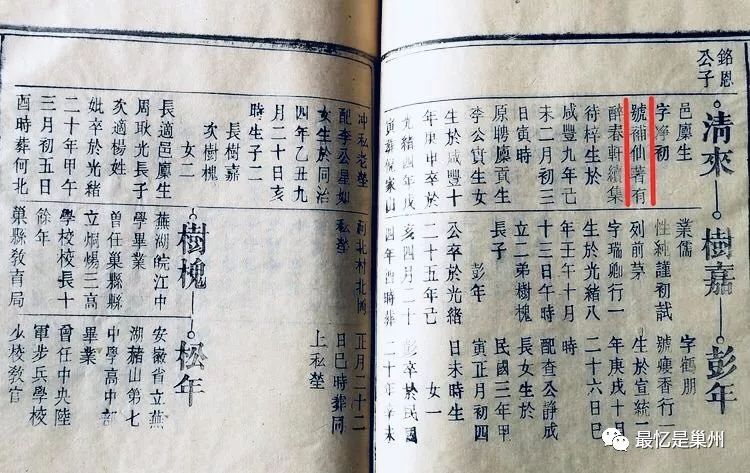 銘恩
公子
清來
邑廪生
字淨初
號袖仙著有
醉春軒續集
待梓生於
咸豐九年己
未二月初三
日寅時
原聘廪貢生
李公實生女
生於咸豐十
年庚申卒於
光緒四年戊
寅葬倪家山
冲私老塋
配李公星如
女生於同治
四年乙丑九
月二十日亥
時生子二
長樹嘉
次樹槐
女二
長適邑廪生
周耿光長子
次適楊姓
妣卒於光緒
二十年甲午
三月初五日
酉時葬何北
樹嘉
業儒
性純謹初試
列前茅
字瑞卿行一
生於光緒八
年壬午十月
十三日午時
立二弟樹槐
長子
彭年
公卒於光緒
二十五年己
亥四月二十
四年酉時葬
河北村北岡
私塋
樹槐
蕪湖皖江中
學畢業
曾任巢縣縣
立烔煬三高
學校校長十
餘年
巢縣教育局
彭年
字鶴朋
號癭香行一
生於宣統二
年庚戌十月
二十六日巳
時
配查公諍成
長女生於
民國三年甲
寅正月初四
日未時生
女一
彭卒於民國
二十年辛未
正月二十二
日巳時葬同
上私塋
松年
安徽省立蕪
湖山第七
中學高中部
畢業
曾任中央陸
軍步兵學校
少校教官
最忆是巢州